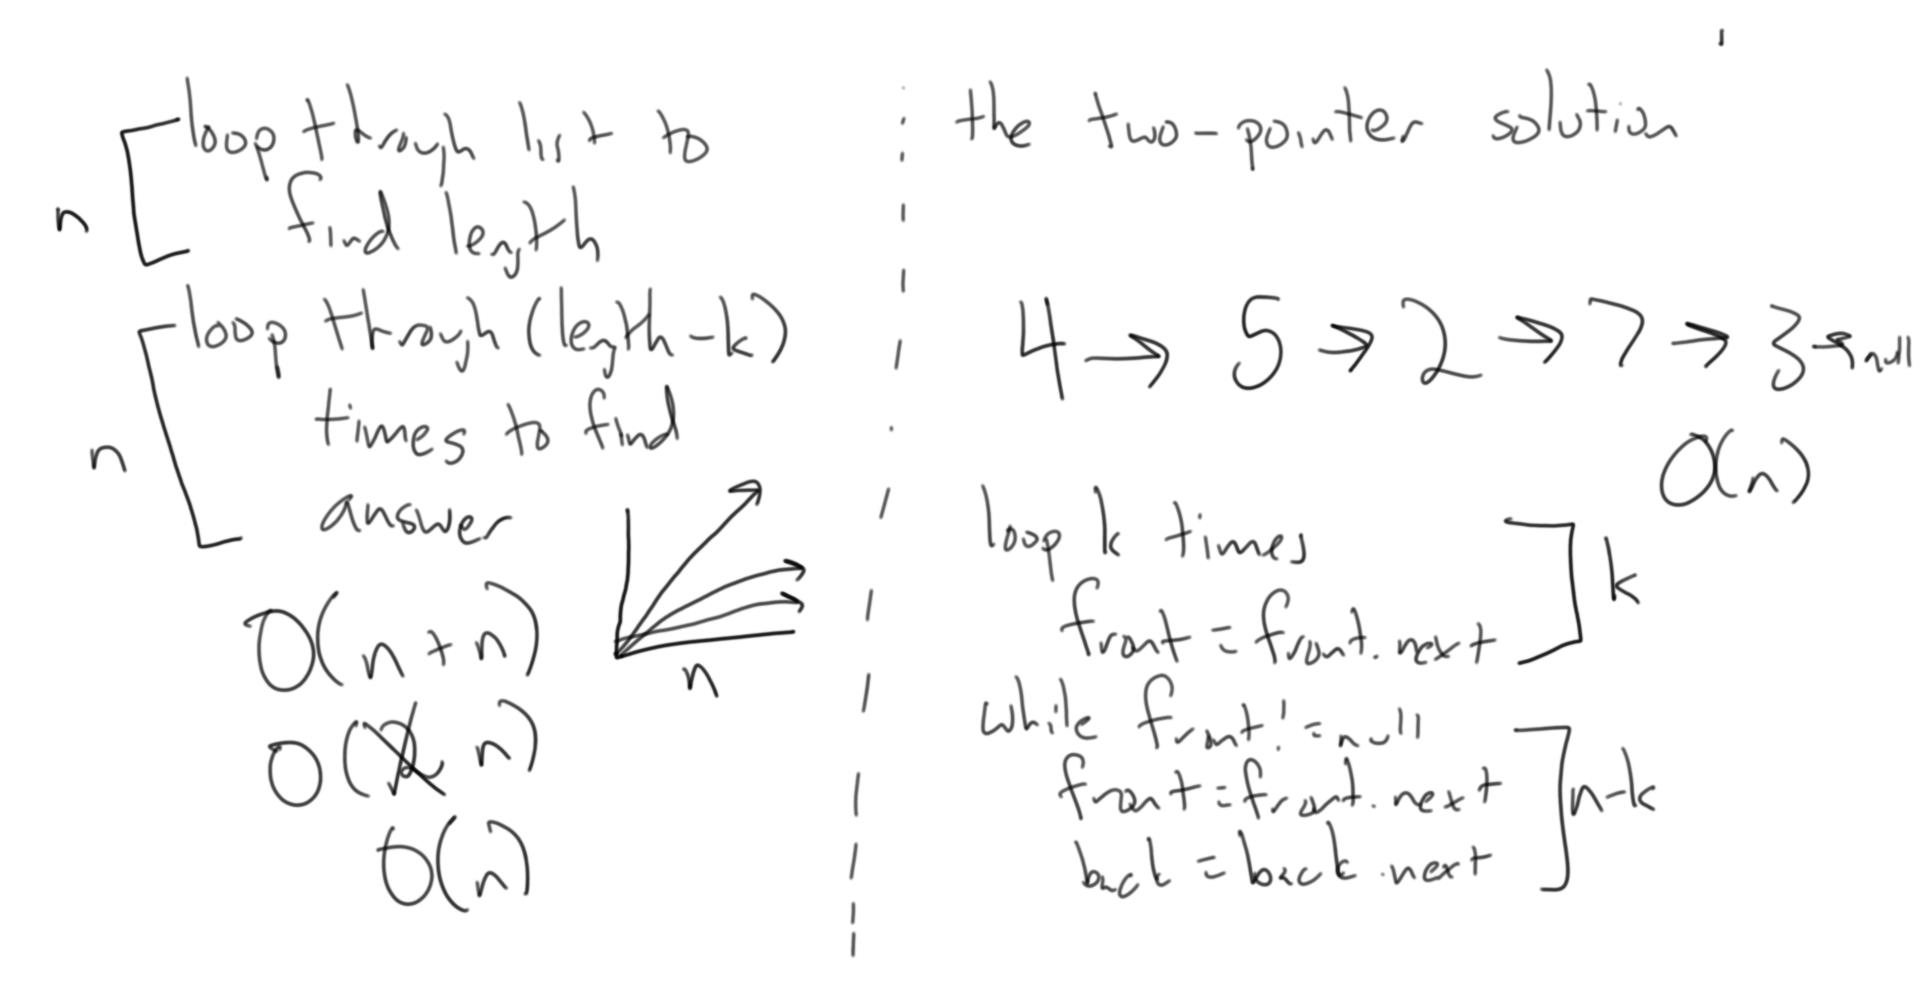 n
loop through list to
find length
n
loop through (length-k)
times to find
answer
O(n+n)
O(2n)
O(n)
n
the two-pointer solution
4 → 5 → 2 → 7 → 3 → null
O(n)
loop k times
front = front.next
k
while front != null
front = front.next
back = back.next
n-k